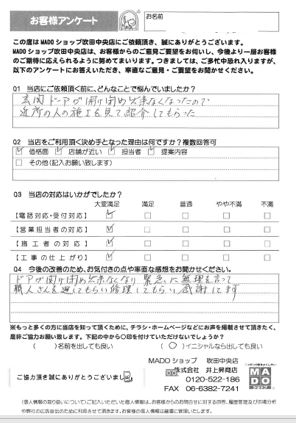 お客様アンケート
お名前
この度はMADOショップ吹田中央店にご依頼頂き、誠にありがとうございます。
MADOショップ吹田中央店は、お客様からのご意見ご要望をお伺いし、今後より一層お客様
のご期待に応えられるように努めてまいります。つきましては、ご多忙中恐れ入りますが、
以下のアンケートにお答えいただき、率直なご意見・ご要望をお聞かせください。
Q1 当店にご依頼頂く前に、どんなことで悩んでいましたか?
玄関ドアが開け閉め出来なくなったので
近所の人の施工を見て紹介してもらった
Q2 当店をご利用頂く決め手となった理由は何ですか?複数回答可
価格面 店舗が近い 担当者 提案内容
その他(記入お願い致します)
Q3 当店の対応はいかがでしたか?
大変満足 満足 普通 やや不満 不満
【電話対応・受付対応】
【営業担当者の対応】
【施工者の対応】
【工事の仕上がり】
Q4 今後の改善のため、お気付きの点や率直な感想をお聞かせください。
ドアが開け閉め出来なくなり緊急に無理を言って
職人さんを廻してもらい修理してもらい感謝してます
※もっと多くの方に当店を知って頂くために、チラシ・ホームページなどにお声を掲載させて頂きたく、
是非ご協力お願い致します。下記の中から○印を付けていただけないでしょうか?
( )名前を出しても良い (○)イニシャルなら出しても良い
MADOショップ 吹田中央店
株式会社 井上昇商店
0120-522-186
FAX 06-6387-7241
ご協力頂き誠にありがとうございました
MADO